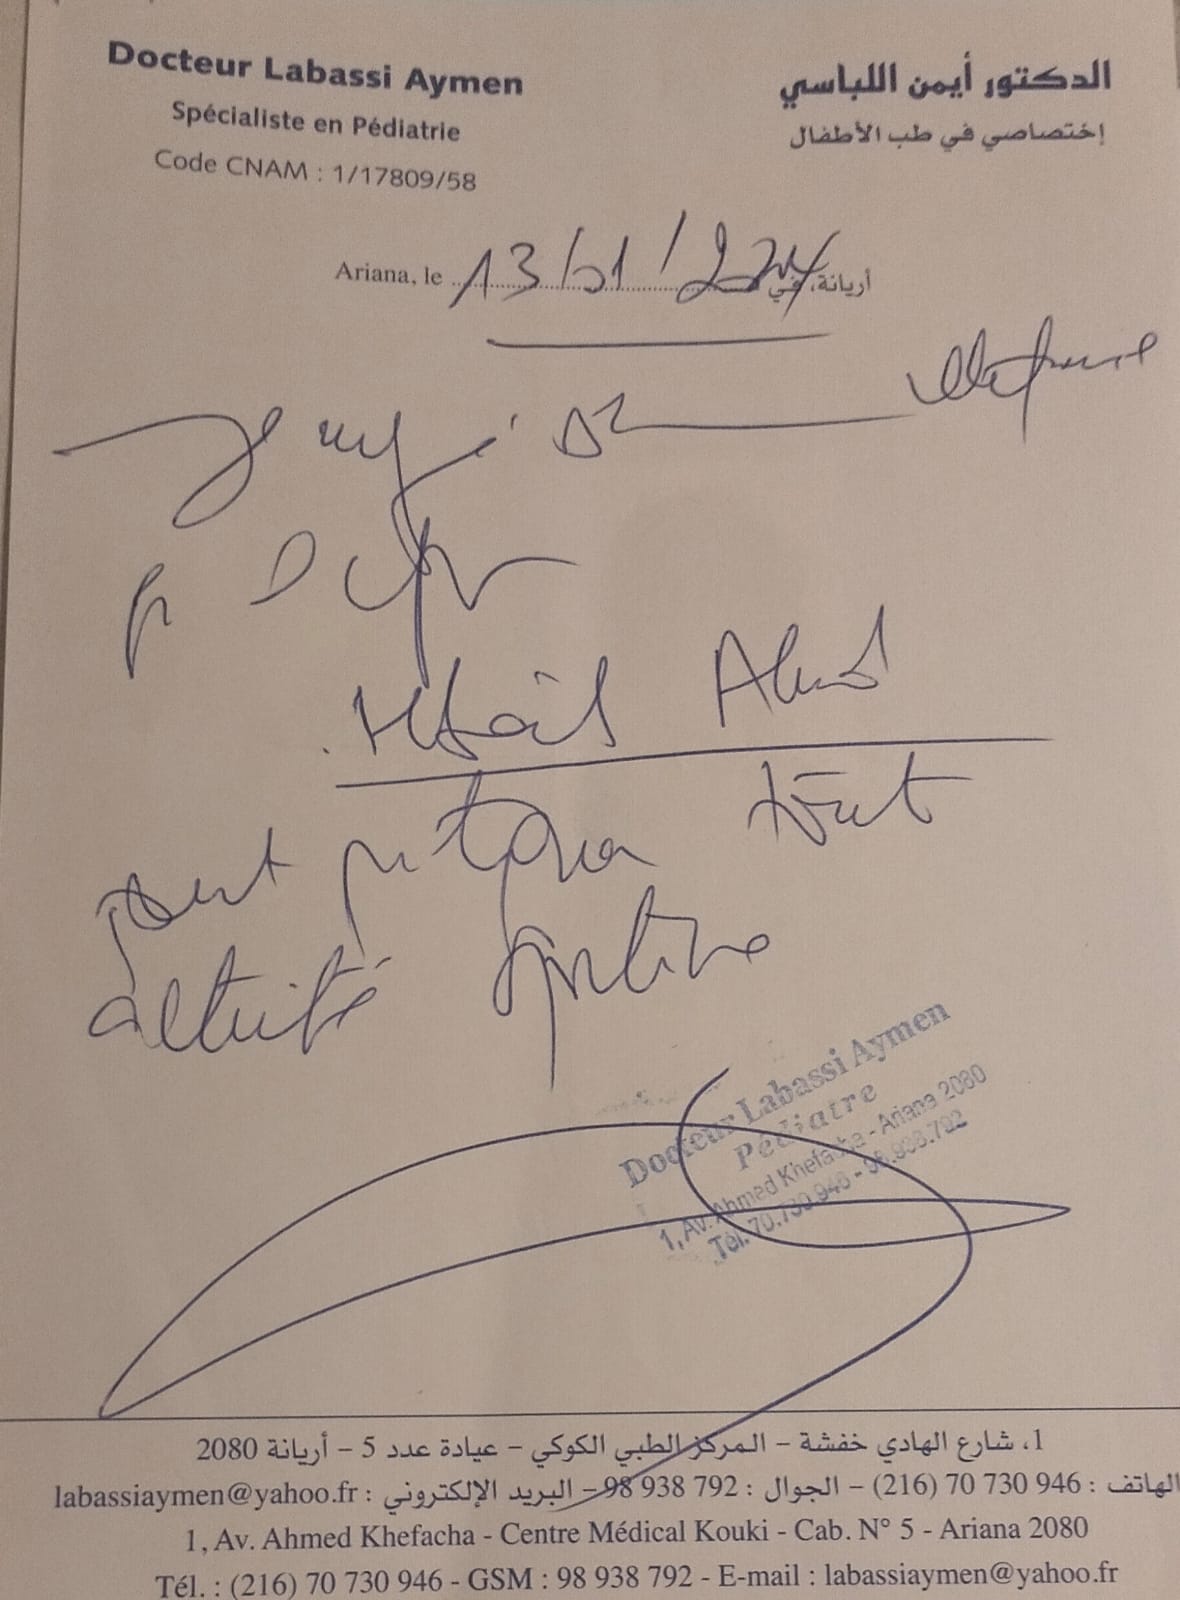 Docteur Labassi Aymen
Spécialiste en Pédiatrie
Code CNAM : 1/17809/58
الدكتور أيمن اللباسي
إختصاصي في طب الأطفال
Ariana, le 13/01/2024 أريانة، في
Ahmed
peut pratiquer tout
activité sportive
Docteur Labassi Aymen
Pédiatre
1, Av. Ahmed Khefacha - Ariana 2080
Tél. 70.730.946 - 98.938.792
1، شارع الهادي خفشة – المركز الطبي الكوكي – عيادة عدد 5 – أريانة 2080
الهاتف : 946 730 70 (216) – الجوال : 792 938 98 – البريد الإلكتروني : labassiaymen@yahoo.fr
1, Av. Ahmed Khefacha - Centre Médical Kouki - Cab. N° 5 - Ariana 2080
Tél. : (216) 70 730 946 - GSM : 98 938 792 - E-mail : labassiaymen@yahoo.fr